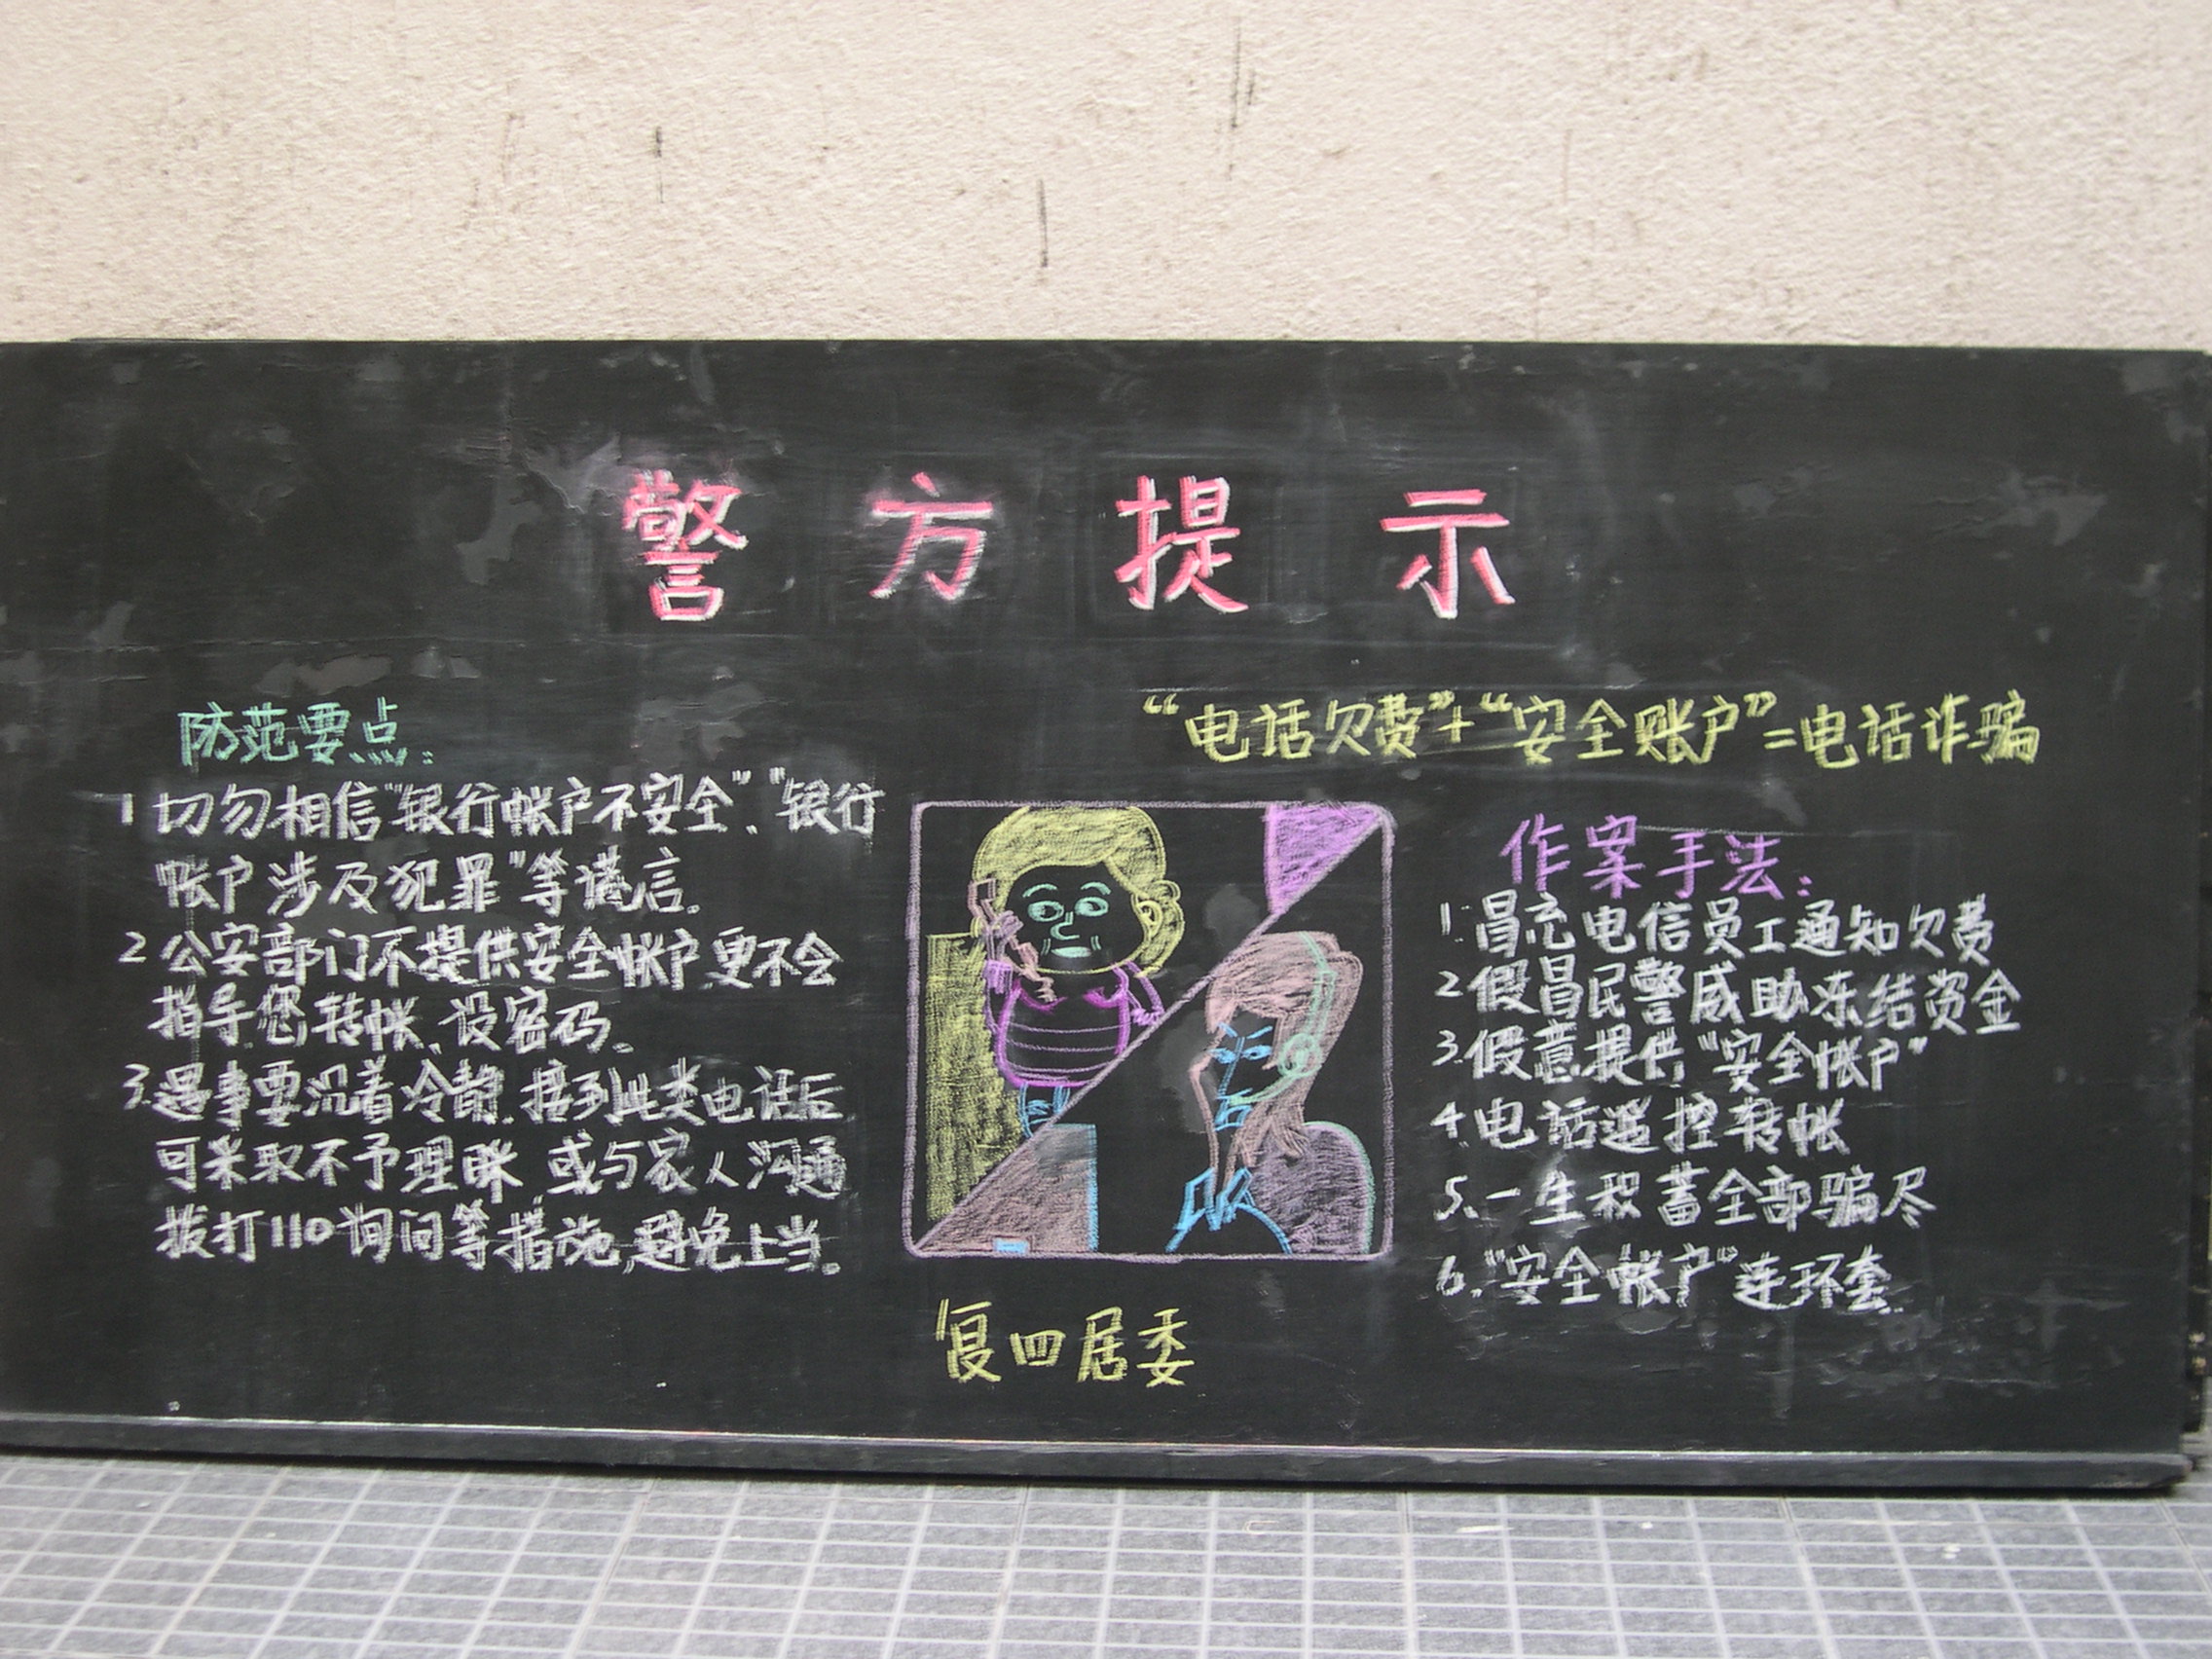 警方提示
防范要点:
1 切勿相信"银行帐户不安全"、"银行
帐户涉及犯罪"等谎言.
2 公安部门不提供安全帐户,更不会
指导您转帐、设密码。
3.遇事要沉着冷静.接到此类电话后
可采取不予理睬,或与家人沟通
拨打110询问等措施,避免上当。
"电话欠费"+"安全账户"=电话诈骗
作案手法:
1.冒充电信员工通知欠费
2 假冒民警威胁冻结资金
3.假意提供"安全帐户"
4.电话遥控转帐
5.一生积蓄全部骗尽
6."安全帐户"连环套
复四居委